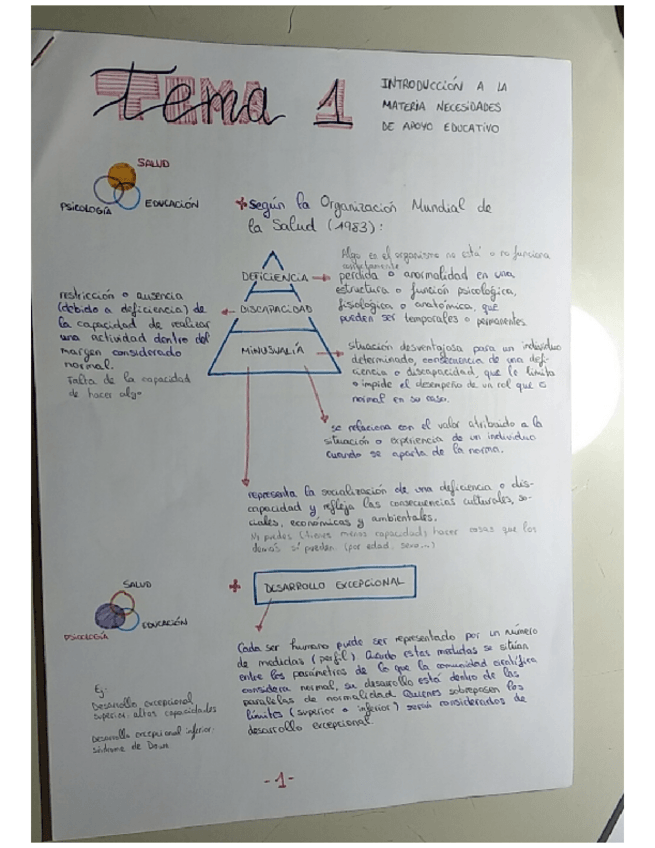 Tema 1
INTRODUCCIÓN A LA
MATERIA NECESIDADES
DE APOYO EDUCATIVO
SALUD
PSICOLOGÍA
EDUCACIÓN
* Según la Organización Mundial de
la Salud (1983):
Algo en el organismo no está o no funciona
correctamente
DEFICIENCIA → pérdida o anormalidad en una
estructura o función psicológica,
fisiológica o anatómica, que
pueden ser temporales o permanentes
DISCAPACIDAD
restricción o ausencia
(debido a deficiencia) de
la capacidad de realizar
una actividad dentro del
margen considerado
normal.
Falta de la capacidad
de hacer algo
MINUSVALÍA → situación desventajosa para un individuo
determinado, consecuencia de una defi-
ciencia o discapacidad, que le limita
o impide el desempeño de un rol que es
normal en su caso.
se relaciona con el valor atribuido a la
situación o experiencia de un individuo
cuando se aparta de la norma.
representa la socialización de una deficiencia o dis-
capacidad y refleja las consecuencias culturales, so-
ciales, económicas y ambientales.
No puedes (tienes menos capacidad) hacer cosas que los
demás sí pueden (por edad, sexo...)
SALUD
PSICOLOGÍA
EDUCACIÓN
* DESARROLLO EXCEPCIONAL
Cada ser humano puede ser representado por un número
de medidas (perfil). Cuando estas medidas se sitúan
entre los parámetros de lo que la comunidad científica
considera normal, su desarrollo está dentro de las
paralelas de normalidad. Quienes sobrepasen los
límites (superior o inferior) serán considerados de
desarrollo excepcional.
Ej:
Desarrollo excepcional
superior: altas capacidades
Desarrollo excepcional inferior:
síndrome de Down
-1-